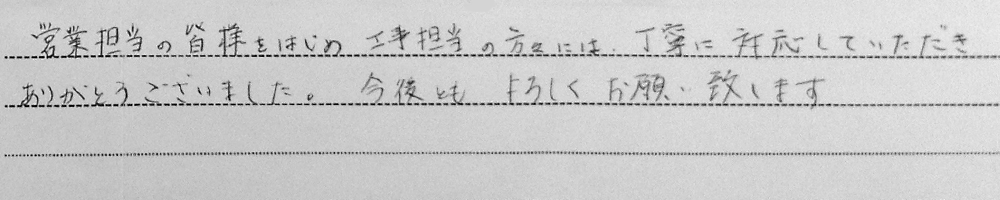 営業担当の皆様をはじめ 工事担当の方々には、丁寧に対応していただき
ありがとうございました。 今後とも よろしくお願い致します